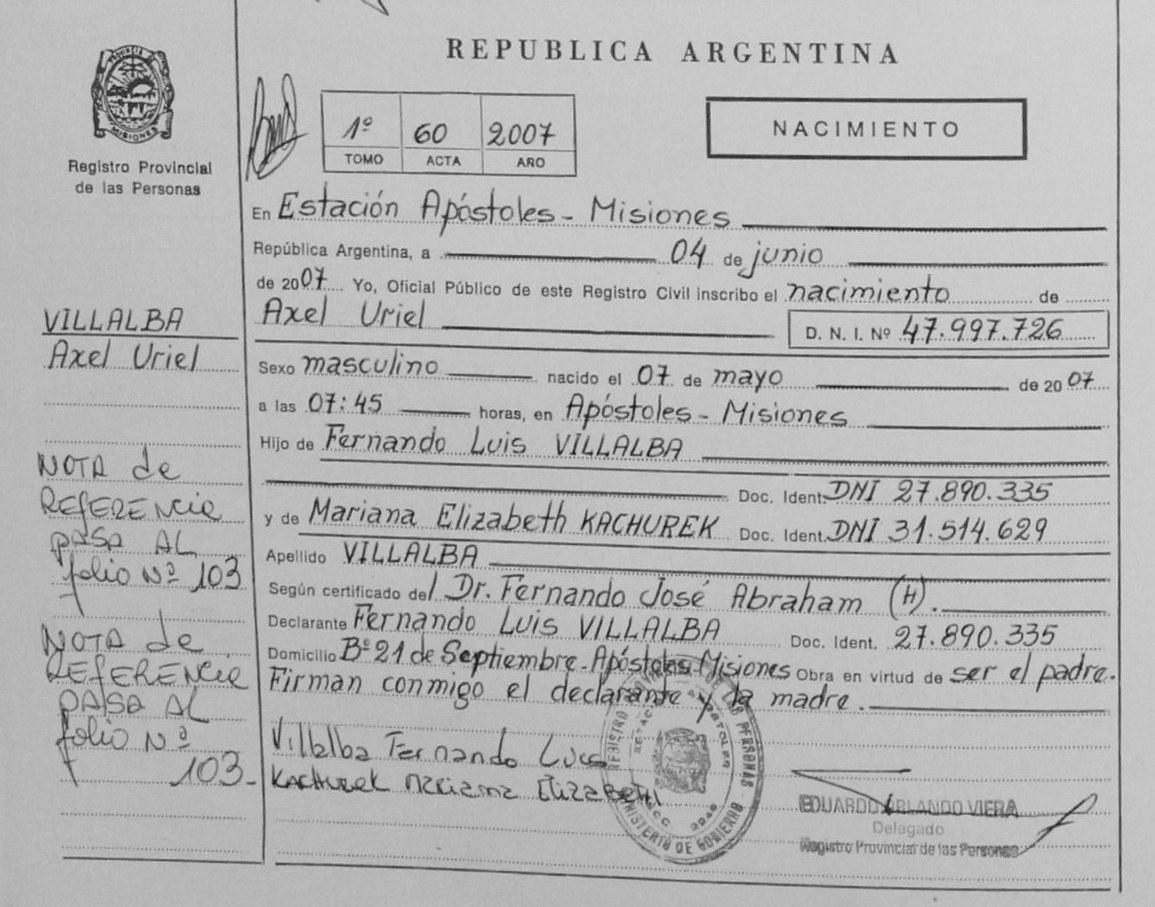 REPUBLICA ARGENTINA
PROVINCIA
MISIONES
Registro Provincial
de las Personas
1º 60 2007
TOMO ACTA AÑO
NACIMIENTO
En Estación Apóstoles - Misiones
República Argentina, a 04 de junio
de 2007 Yo, Oficial Público de este Registro Civil inscribo el nacimiento de
Axel Uriel
D. N. I. Nº 47.997.726
Sexo masculino nacido el 07 de mayo de 2007
a las 07:45 horas, en Apóstoles - Misiones
Hijo de Fernando Luis VILLALBA
Doc. Ident. DNI 27.890.335
y de Mariana Elizabeth KACHUREK Doc. Ident. DNI 31.514.629
Apellido VILLALBA
Según certificado del Dr. Fernando José Abraham (H).
Declarante Fernando Luis VILLALBA Doc. Ident. 27.890.335
Domicilio Bº 21 de Septiembre - Apóstoles Misiones Obra en virtud de ser el padre.
Firman conmigo el declarante y la madre.
Villalba Fernando Luis
Kachurek Mariana Elizabeth
REGISTRO DE LAS PERSONAS
MINISTERIO DE GOBIERNO
EDUARDO ORLANDO VIERA
Delegado
Registro Provincial de las Personas
VILLALBA
Axel Uriel
NOTA de
REFERENCIA
PASA AL
folio Nº 103
NOTA de
REFERENCIA
PASA AL
folio Nº
103-